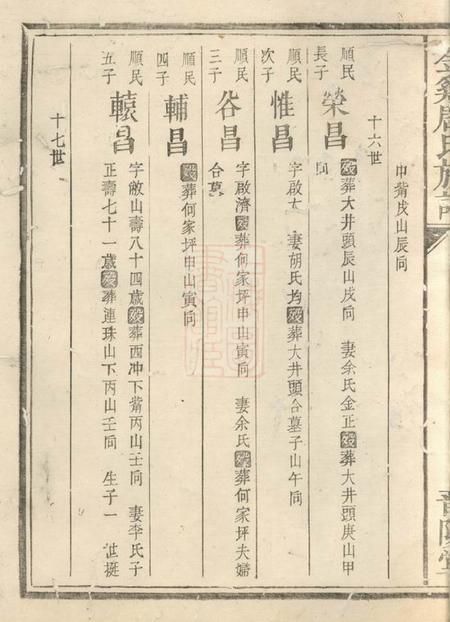 巾觜戌山辰向
十六世
順民
長子
榮昌
葬大井頭辰山戌向 妻余氏金正歿葬大井頭庚山甲
向
順民
次子
惟昌
字啟太 妻胡氏均歿葬大井頭合墓子山午向
順民
三子
谷昌
字啟濟歿葬何家坪申山寅向 妻余氏歿葬何家坪夫婦
合墓
順民
四子
輔昌
歿葬何家坪申山寅向
順民
五子
轅昌
字敝山壽八十四歲歿葬西冲下觜丙山壬向 妻李氏子
正壽七十一歲歿葬連珠山下丙山壬向 生子一 世挺
十七世